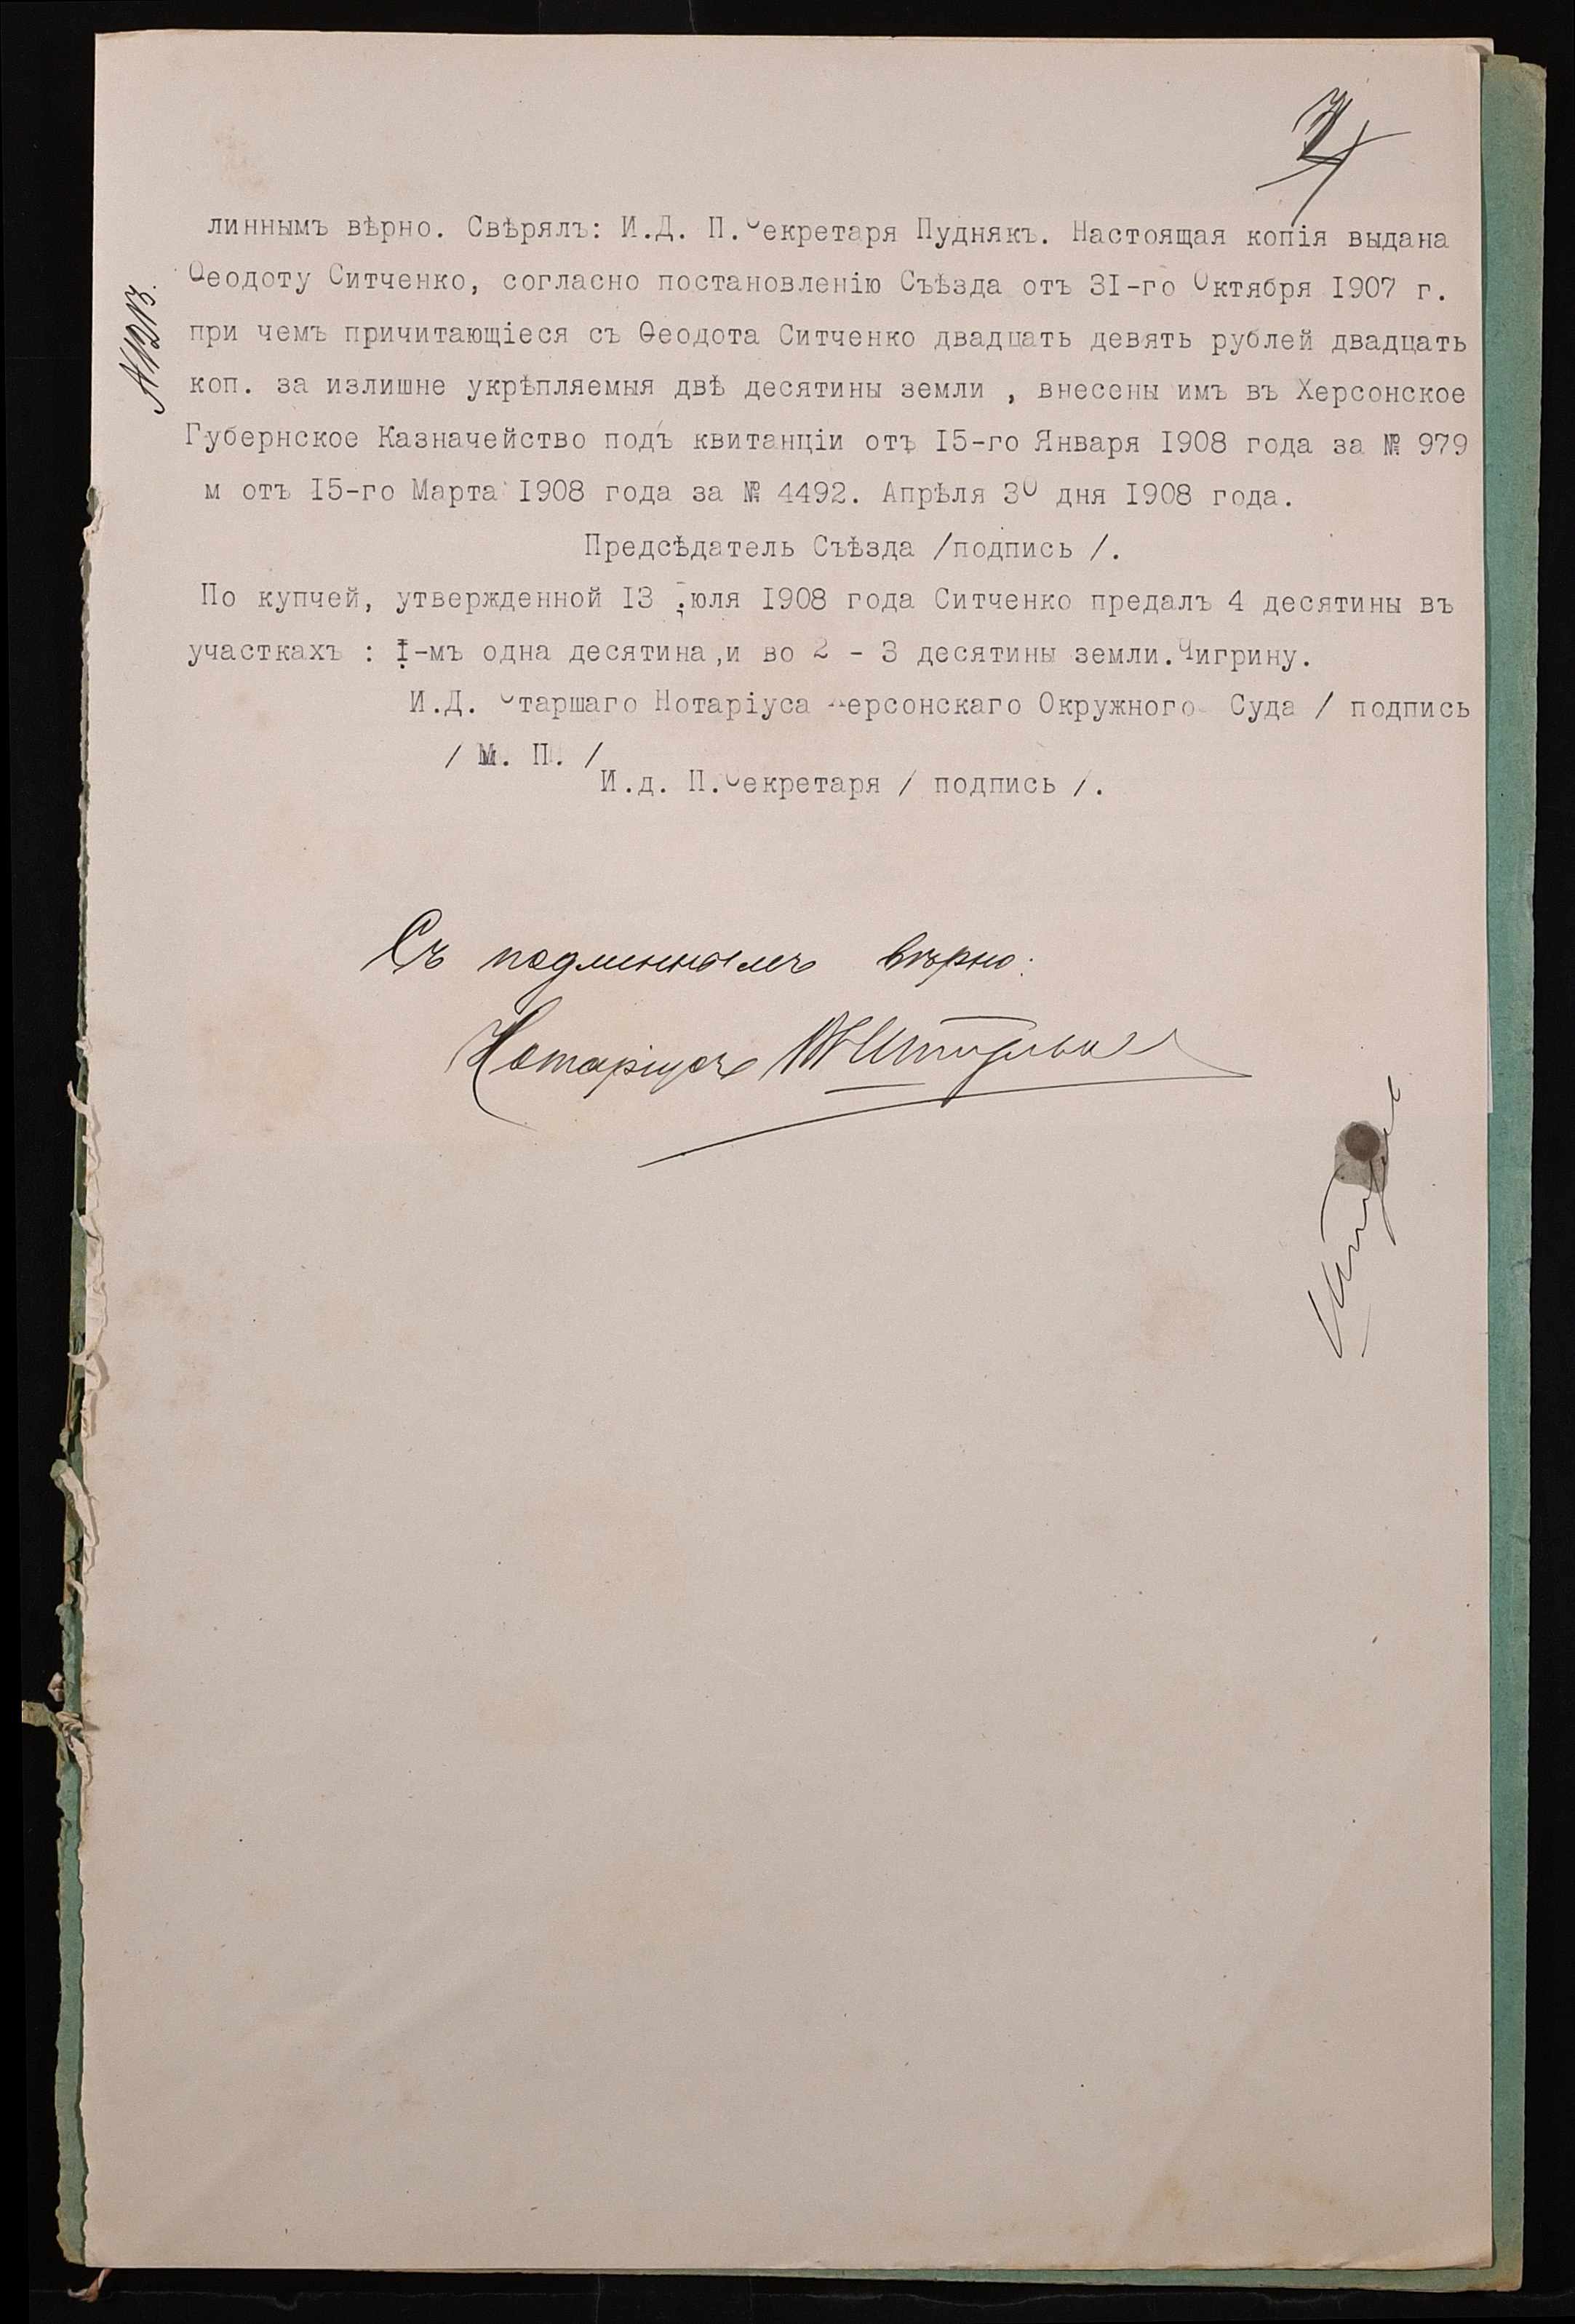 линнымъ вѣрно. Свѣрялъ: И.Д. П.Секретаря Пуднякъ. Настоящая копія выдана
Ѳеодоту Ситченко, согласно постановленію Съѣзда отъ 3I-го Октября I907 г.
при чемъ причитающіеся съ Ѳеодота Ситченко двадцать девять рублей двадцать
коп. за излишне укрѣпляемыя двѣ десятины земли , внесены имъ въ Херсонское
Губернское Казначейство подъ квитанціи отъ I5-го Января I908 года за № 979
м отъ I5-го Марта I908 года за № 4492. Апрѣля 30 дня I908 года.
Предсѣдатель Съѣзда /подпись /.
По купчей, утвержденной I3 Іюля I908 года Ситченко предалъ 4 десятины въ
участкахъ : I-мъ одна десятина,и во 2 - 3 десятины земли.Чигрину.
И.Д. Старшаго Нотаріуса Херсонскаго Окружного Суда / подпись
/ М. П. /
И.д. П.Секретаря / подпись /.
Съ подлиннымъ вѣрно:
Нотаріусъ